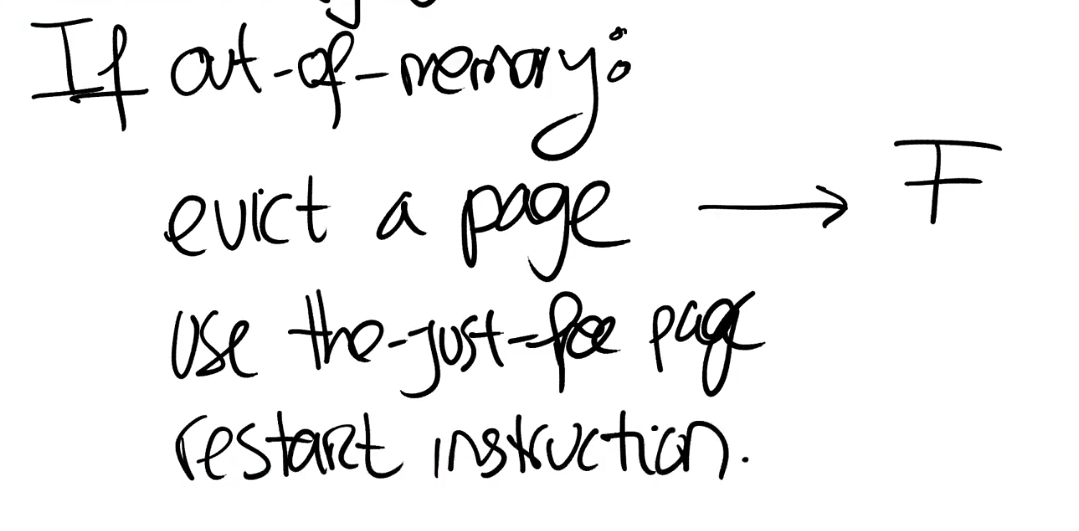 If out-of-memory:
evict a page → F
use the-just-free page
restart instruction.